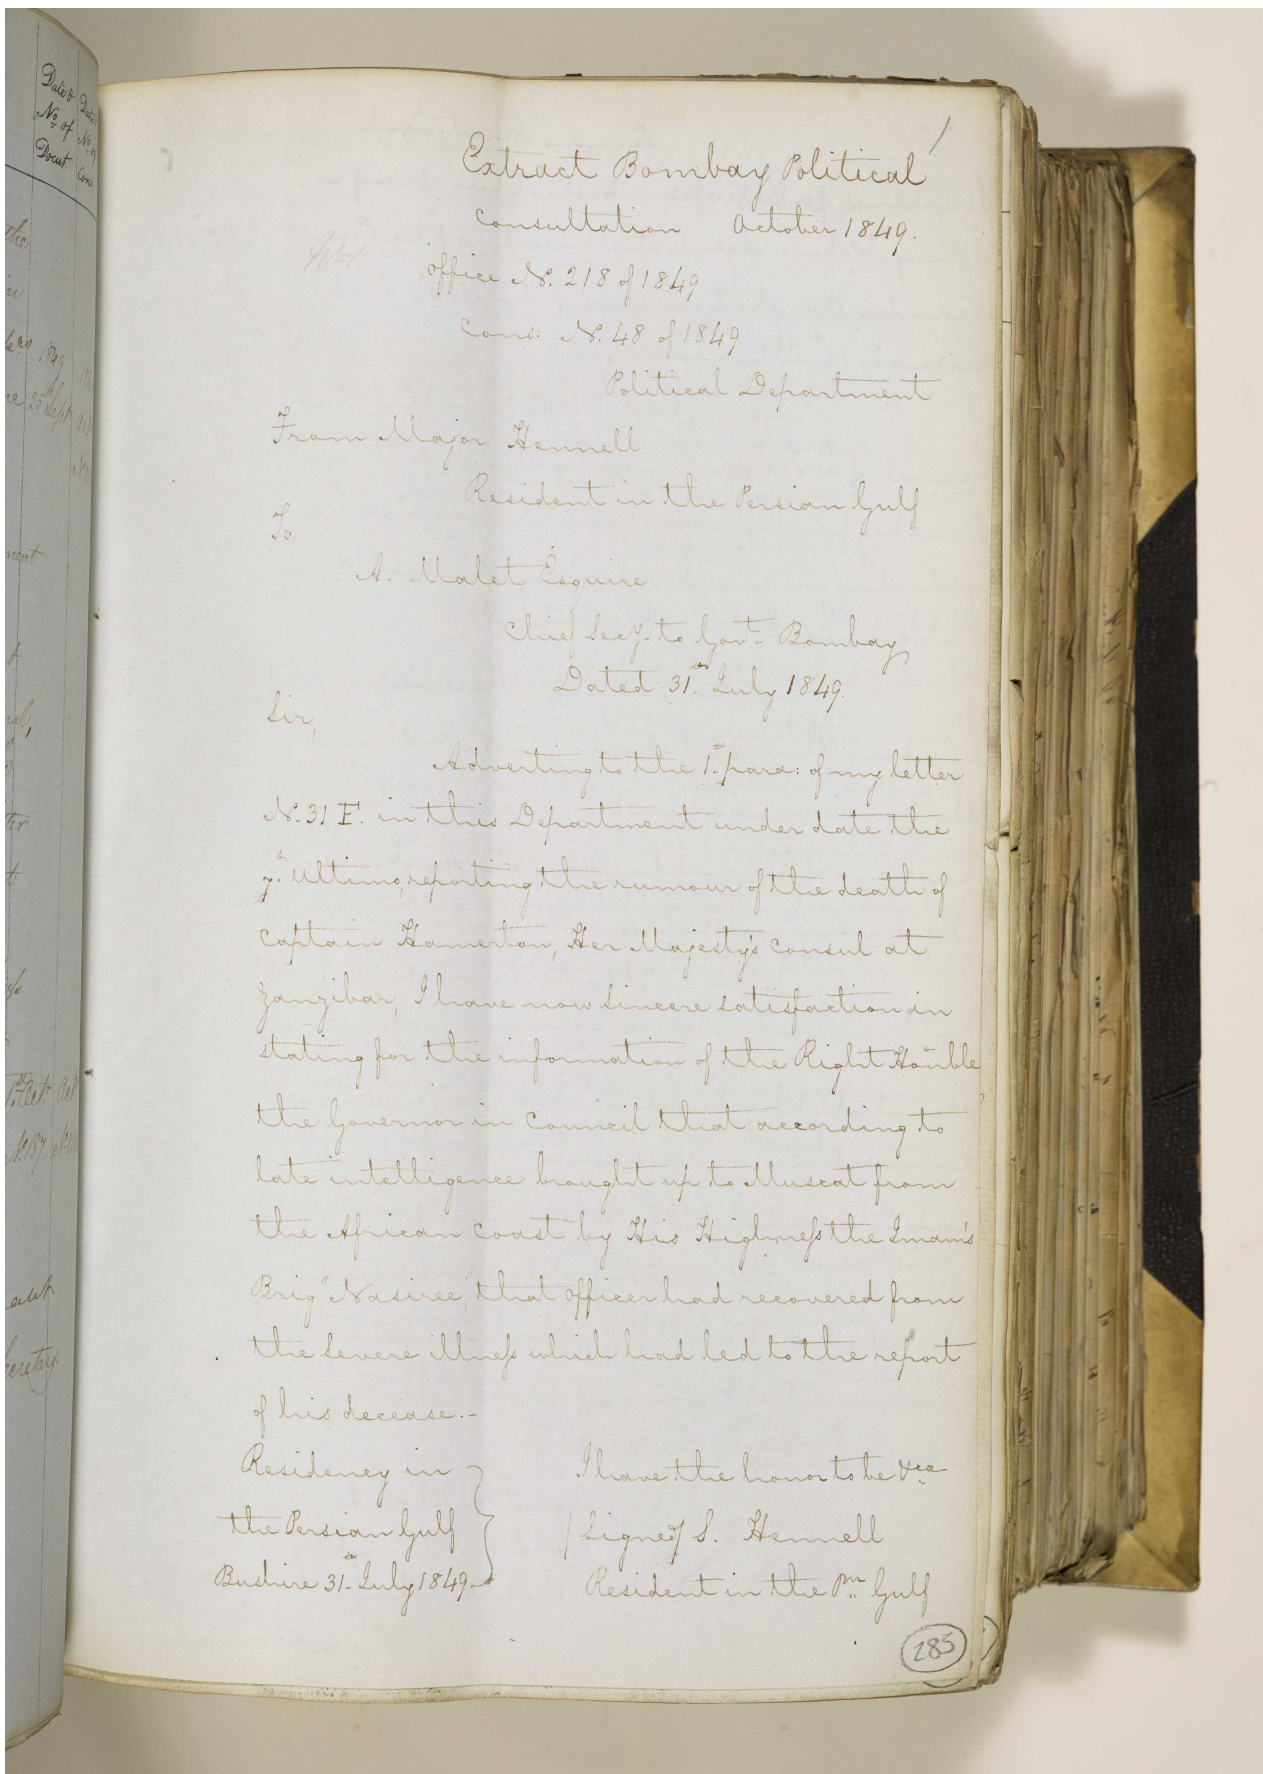 Date & Date
No of No of
Docut. Cons
1
Extract Bombay Political
Consultation October 1849.
No 1.
Office No. 218 of 1849
Cons: No. 48 of 1849
Political Department
From Major Hennell
Resident in the Persian Gulf
To,
A. Malet Esquire
Chief Secy. to Govt. Bombay
Dated 31st. July 1849.
Sir,
Adverting to the 1st. para: of my letter
No. 31 F. in this Department under date the
7th. Ultimo, reporting the rumour of the death of
Captain Hamerton, Her Majesty's Consul at
Zanzibar, I have now sincere satisfaction in
stating for the information of the Right Honble
the Governor in Council that according to
late intelligence brought up to Muscat from
the African Coast by His Highness the Imam's
Brig "Nasiree", that officer had recovered from
the severe illness which had led to the report
of his decease.-
Residency in I have the honor to be &ca
the Persian Gulf (Signed) S. Hennell
Bushire 31st. July 1849. Resident in the Pn Gulf
285